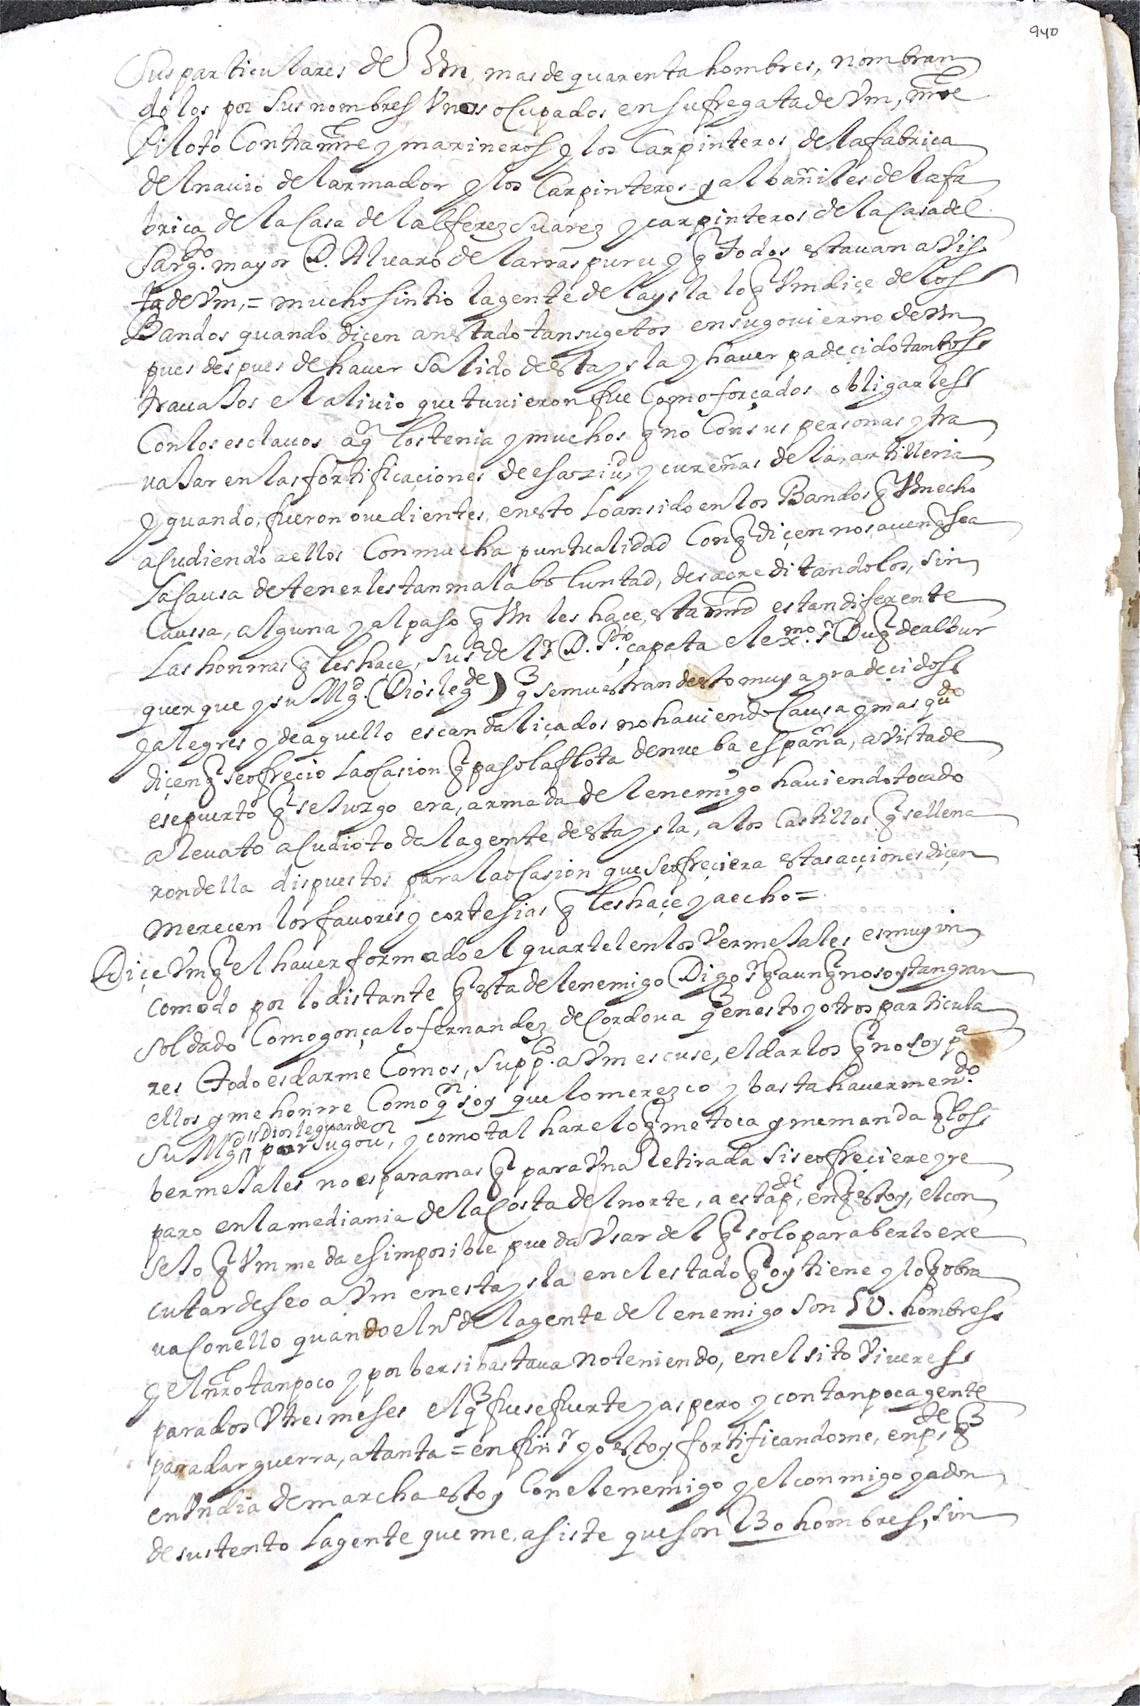 940
Sus particulares de Vm, mas de quarenta hombres, nombran
dolos por sus nombres Vnos ocupados en su fregata de Vm, mre
Piloto Contramre y marineros y los Carpinteros de la fabrica
del navio del armador y los Carpinteros y albañiles de la fa
brica de la Casa del alferez Suarez y carpinteros de la Casa del
Sargto. mayor D. Alvaro de larraspuru y q todos estavan a Vis
ta de Vm, = mucho sintio la gente de la ysla lo q Vm diçe de los
Bandos quando dicen an estado tan sugetos en su govierno de Vm
pues despues de haver salido de esta ysla y haver padeçido tantos
travaJos el alivio que tuvieron fue Como forçados obligarles
Con los esclavos aql los tenia y muchos q no Con sus personas y tra
vaJar en las fortificaciones de esa ziud y cureñas de la artilleria
y quando, fueron ovedientes, en esto Lo an sido en los Bandos q Vm echo
acudiendo a ellos Con mucha puntualidad Con q diçen no saven q sea
La Causa de tenerles tan mala boluntad, desacreditandolos, sin
Caussa, alguna y al paso q Vm les hace, esta mrd es tan diferente
Las honrras q les haçe, Susa del sr D. Po. çapata el exmo. sr Duq de albur
querque y su Mgd. (Dios le gde) q se muestran de esto muy agradeçidos
y alegres y de aquello escandaliçados no haviendo Causa y mas qdo
diçen q se ofrecio La ocasion q paso la flota de nueba españa, a vista de
ese puerto q se Juzgo era, armada del enemigo haviendo tocado
a Revato acudio toda la gente de esta ysla, a los Castillos q se llena
ron della dispuestos para la ocasion que se ofreciera estas acçiones diçen
merecen los favores y cortesias q les haçe y a echo =
Diçe Vm q el haver formado el quartel en los VermeJales es muy in
comodo por lo distante q esta del enemigo Digo sr q aunq no soy tan gran
soldado Como gonçalo fernandez de Cordova q en esto y otros particula
res todo es darme Comos, Suppo. a Vm escuse, el darlos q no soy pa
ellos y me honrre Como qn soy que lo merezco y basta haverme ndo.
Su Mgd Dios le guarde por su gour, y como tal hare lo q me toca y me manda q los
bermeJales no es para mas q para Vna Retirada si se ofreçiere y re
paro en la mediania de la Costa del norte, a esta pde, en q estoy, el con
seJo q Vm me da es imposible pueda Vsar del q solo para berlo exe
cutar deseo a Vm en esta ysla en el estado q oy tiene y lo q obra
va Con ello quando el no de la gente del enemigo son 5U. hombres
y el nro tanpoco y por ber si bastava no teniendo, en el sito Viveres
para dos V tres meses el q fuese fuerte y aspero y con tan poca gente
para dar guerra, a tanta = en fin sr yo estoy fortificandome, en pde, q
en Vn dia de marcha estoy Con el enemigo y el conmigo y adon
de sustento La gente que me asiste que son 230 hombres, sin